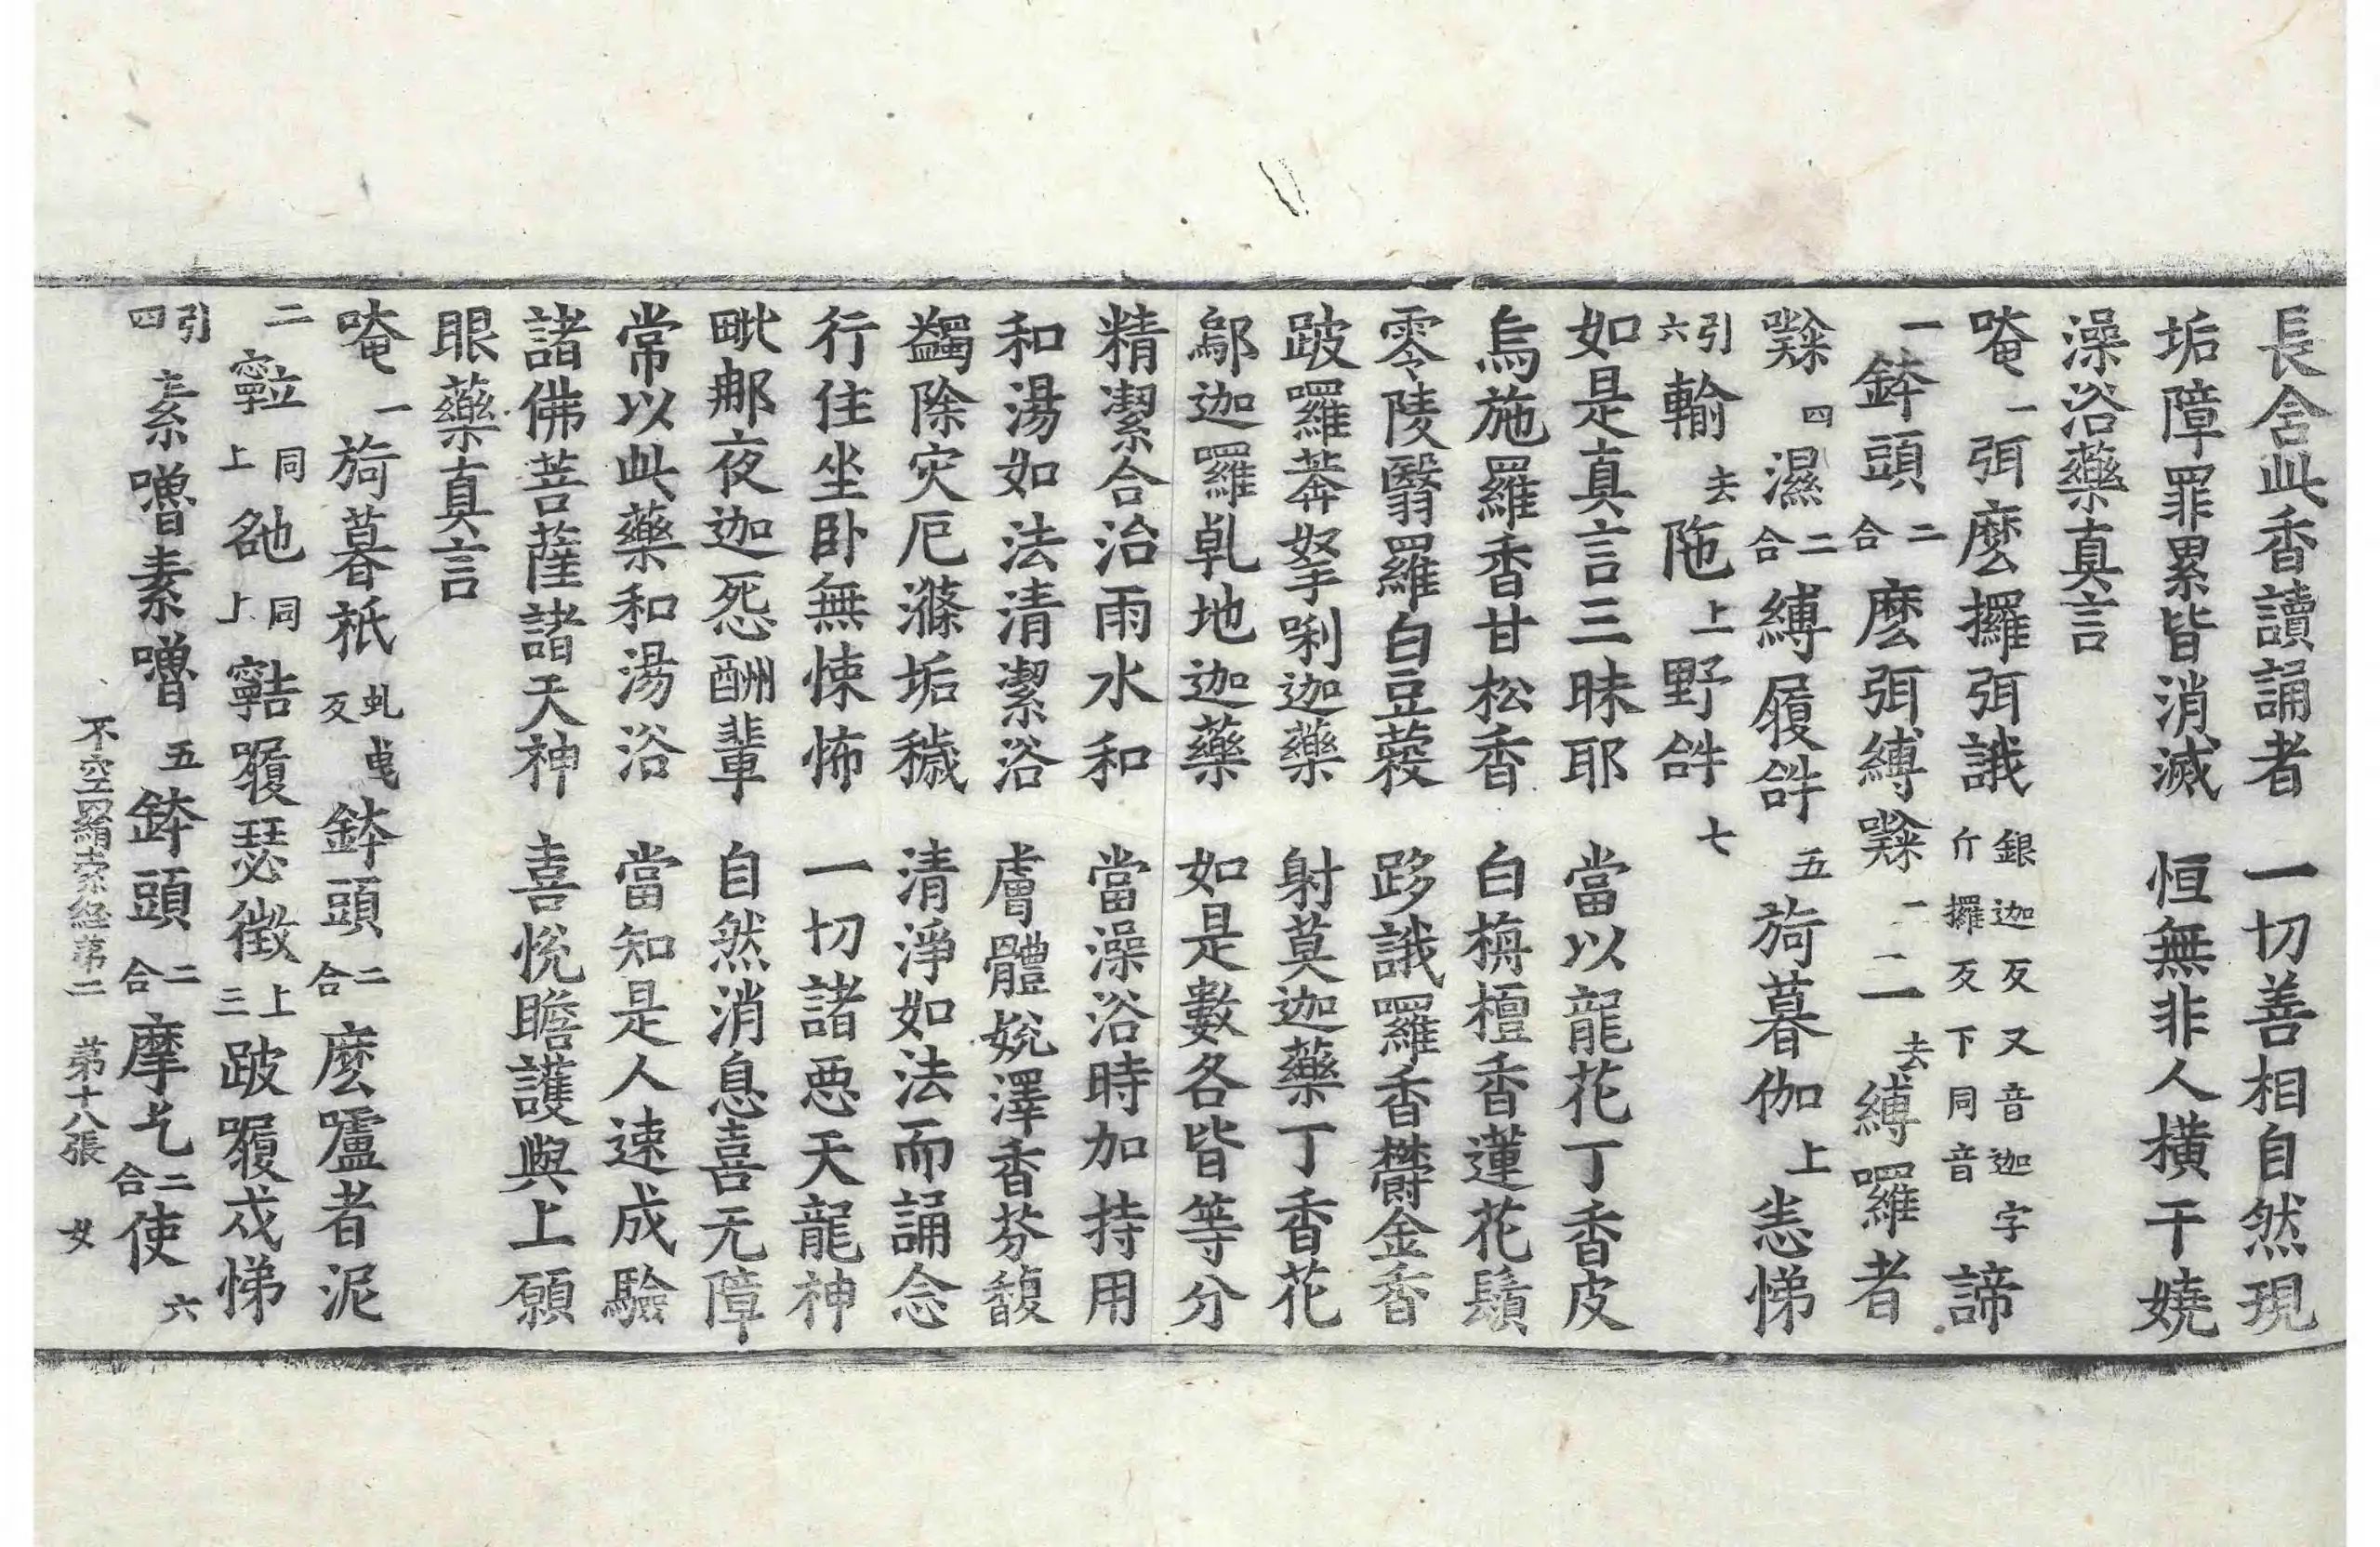 長含此香讀誦者　一切善相自然現
垢障罪累皆消滅　恒無非人橫干嬈
澡浴藥真言
唵一弭麼攞弭誐銀迦反又音迦字斤攞反下同音諦
一鉢頭二合麼弭縛㘑二三去縛囉者
㘑四濕二合縛履𤙖五旖暮伽上恙悌
引六輸去陁上野𤙖七
如是真言三昧耶　當以龍花丁香皮
烏施羅香甘松香　白栴檀香蓮花鬚
零陵翳羅白豆蔲　跢誐羅香欝金香
跛囉莾拏唎迦藥　射莫迦藥丁香花
鄔迦羅乹地迦藥　如是數各皆等分
精潔合治雨水和　當澡浴時加持用
和湯如法清潔浴　膚體娧澤香芬馥
蠲除灾厄滌垢穢　清淨如法而誦念
行住坐卧無悚怖　一切諸惡天龍神
毗那夜迦惡酬輩　自然消息喜无障
常以此藥和湯浴　當知是人速成驗
諸佛菩薩諸天神　喜悅瞻護與上願
眼藥真言
唵一旖暮祇虬曳反鉢頭二合麼嚧者泥
二同上同上㘄瑟徵上三跛㘄戍悌
引四素嚕素嚕五鉢頭二合摩乞二合使六
不空羂索経第二　第十八張　女